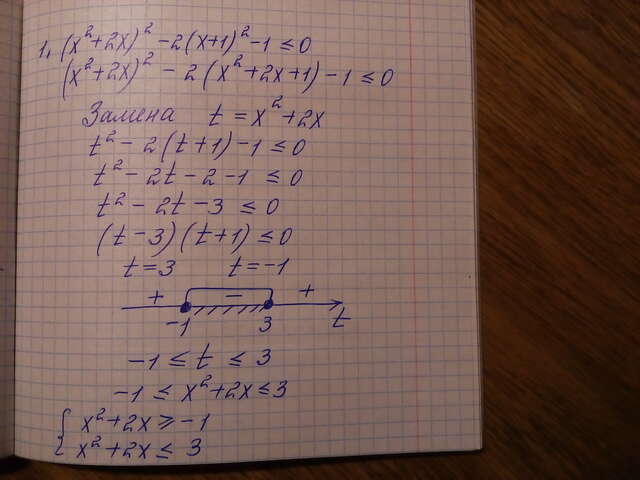 1. (x²+2x)² -2(x+1)² -1 ≤ 0
(x²+2x)² - 2(x²+2x+1) -1 ≤ 0
Замена t = x²+2x
t² - 2(t+1) -1 ≤ 0
t² - 2t - 2 -1 ≤ 0
t² - 2t - 3 ≤ 0
(t-3)(t+1) ≤ 0
t=3 t=-1
+ - +
-1 3 t
-1 ≤ t ≤ 3
-1 ≤ x²+2x ≤ 3
{ x²+2x ≥ -1
x²+2x ≤ 3